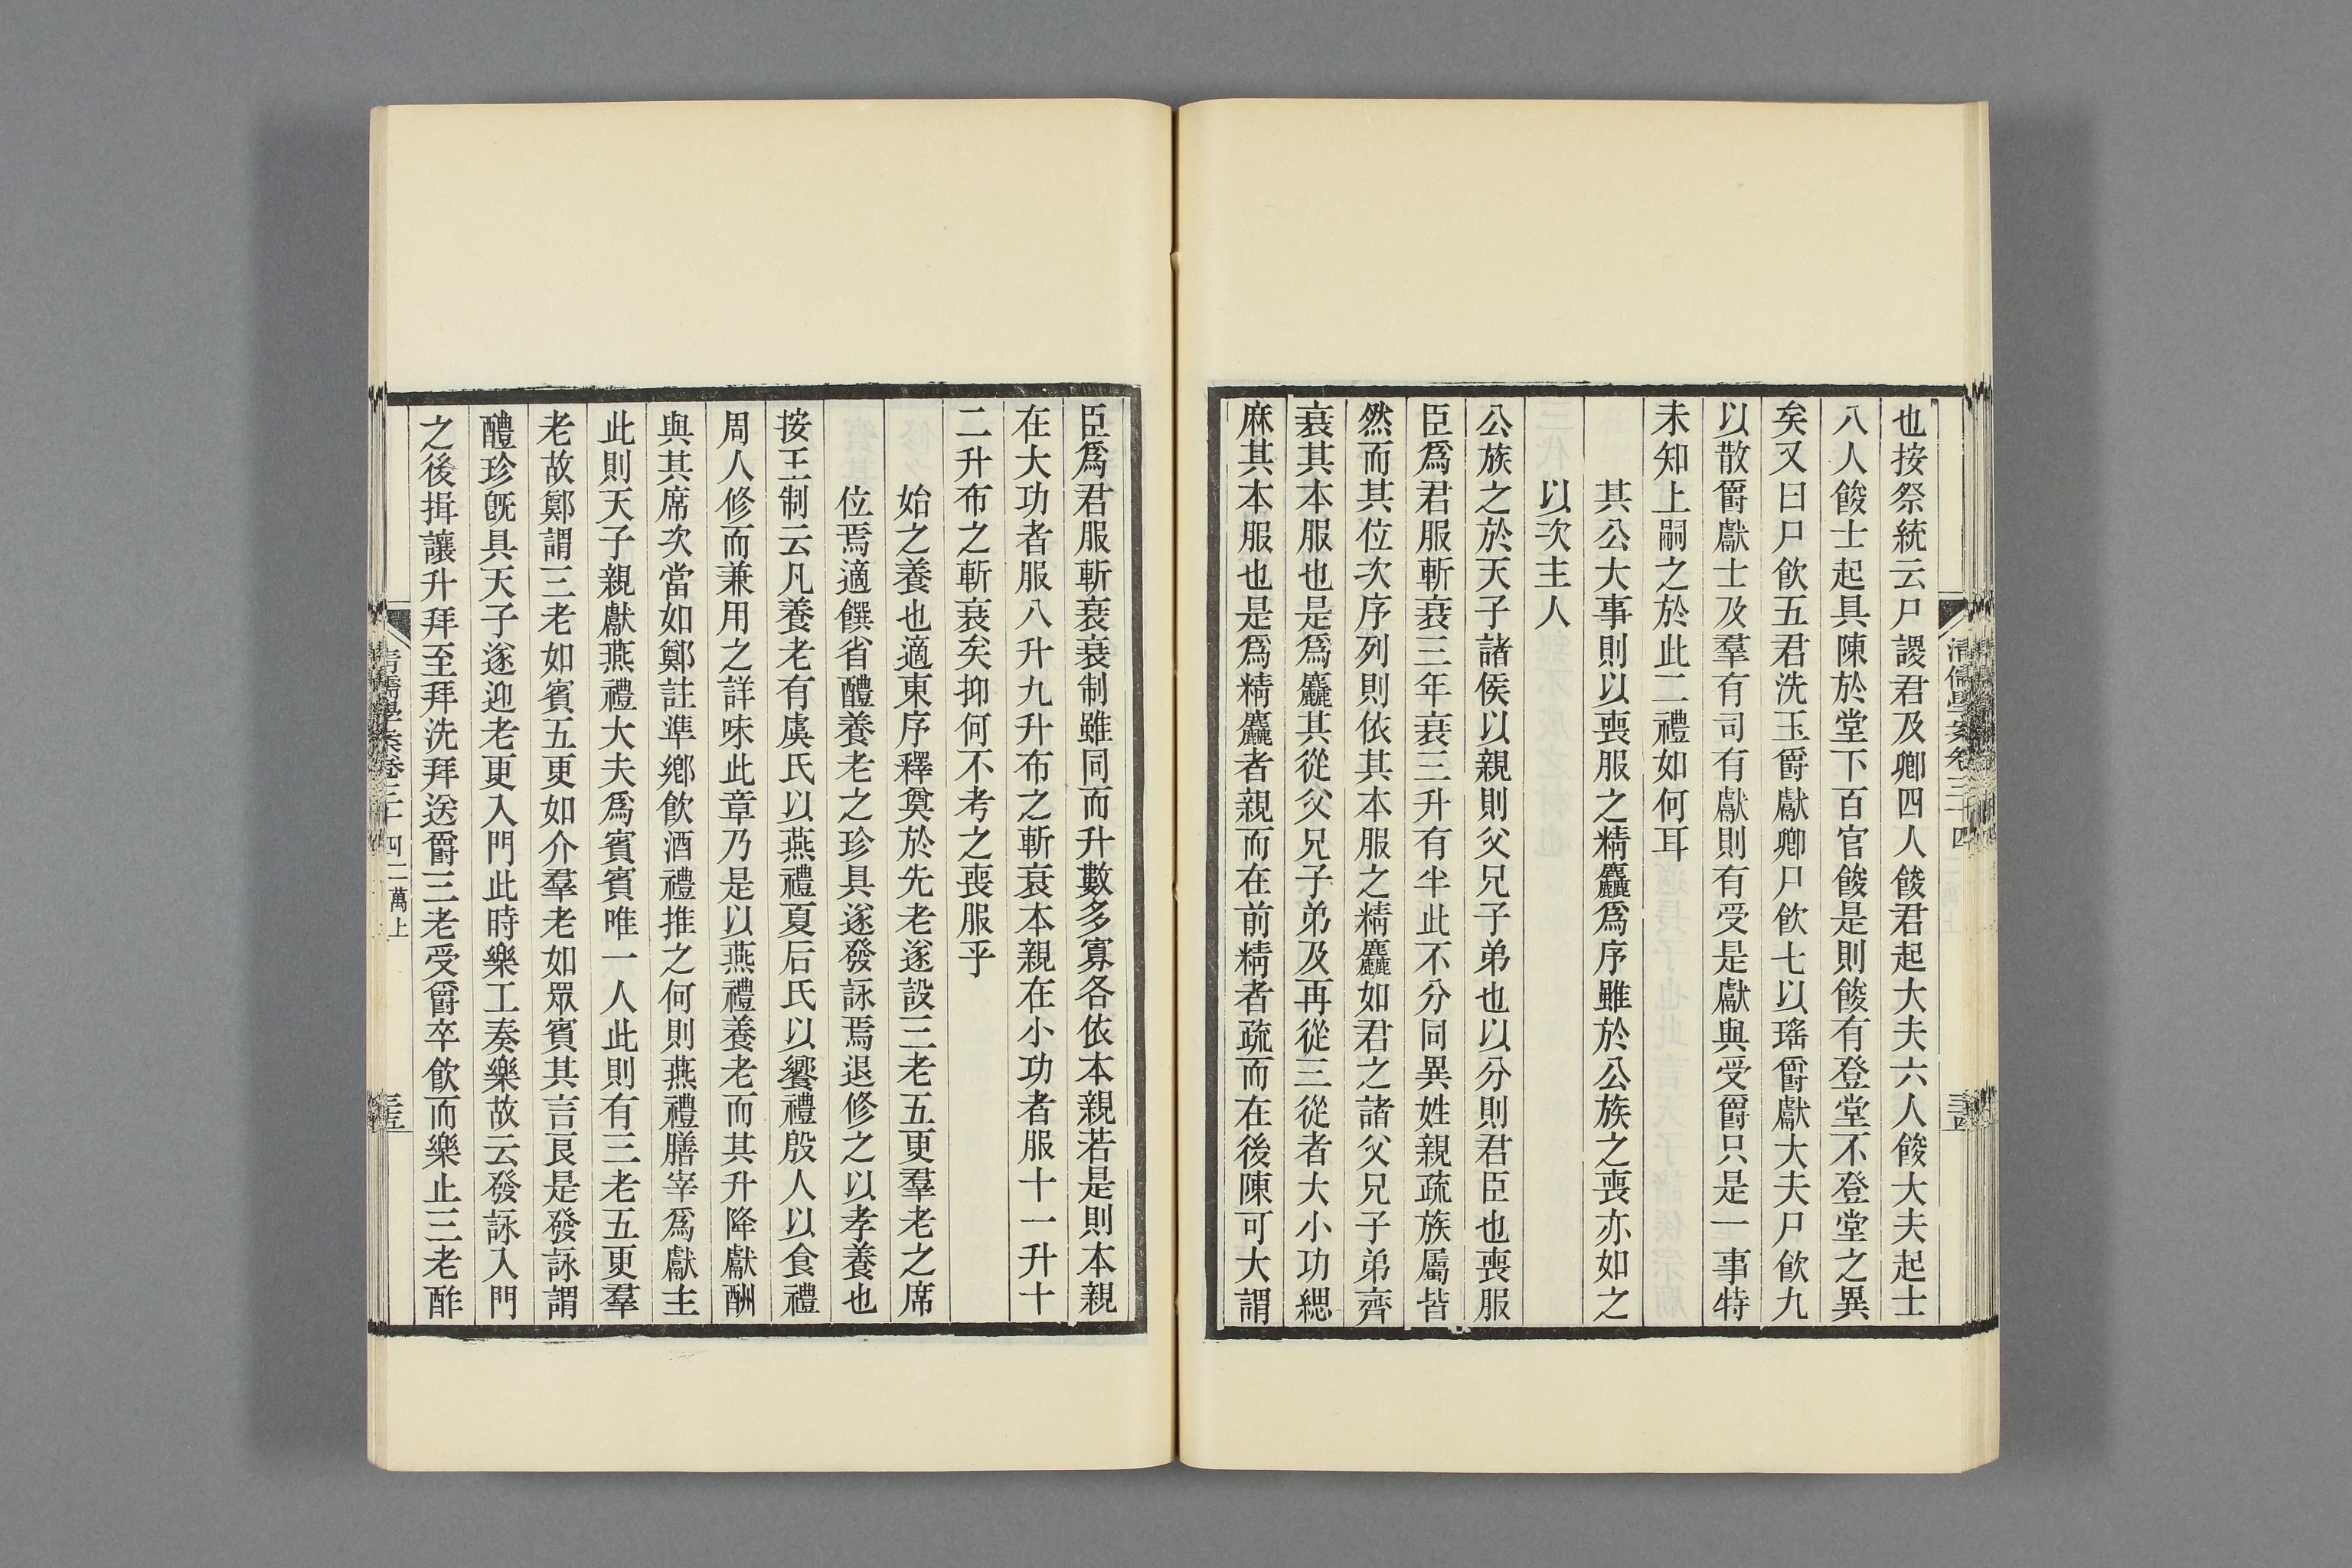 也按祭統云尸謖君及卿四人餕君起大夫六人餕大夫起士
八人餕士起具陳於堂下百官餕是則餕有登堂不登堂之異
矣又曰尸飮五君洗玉爵獻卿尸飮七以瑤爵獻大夫尸飮九
以散爵獻士及羣有司有獻則有受是獻與受爵只是一事特
未知上嗣之於此二禮如何耳
其公大事則以喪服之精麤爲序雖於公族之喪亦如之
以次主人
公族之於天子諸侯以親則父兄子弟也以分則君臣也喪服
臣爲君服斬衰三年衰三升有半此不分同異姓親疏族屬皆
然而其位次序列則依其本服之精麤如君之諸父兄子弟齊
衰其本服也是爲麤其從父兄子弟及再從三從者大小功緦
麻其本服也是爲精麤者親而在前精者疏而在後陳可大謂
清儒學案卷三十四
三十四
臣爲君服斬衰衰制雖同而升數多寡各依本親若是則本親
在大功者服八升九升布之斬衰本親在小功者服十一升十
二升布之斬衰矣抑何不考之喪服乎
始之養也適東序釋奠於先老遂設三老五更羣老之席
位焉適饌省醴養老之珍具遂發詠焉退修之以孝養也
按王制云凡養老有虞氏以燕禮夏后氏以饗禮殷人以食禮
周人修而兼用之詳味此章乃是以燕禮養老而其升降獻酬
與其席次當如鄭註準鄉飮酒禮推之何則燕禮膳宰爲獻主
此則天子親獻燕禮大夫爲賓賓唯一人此則有三老五更羣
老故鄭謂三老如賓五更如介羣老如眾賓其言良是發詠謂
醴珍旣具天子遂迎老更入門此時樂工奏樂故云發詠入門
之後揖讓升拜至拜洗拜送爵三老受爵卒飮而樂止三老酢
清儒學案卷三十四二萬上
三十五